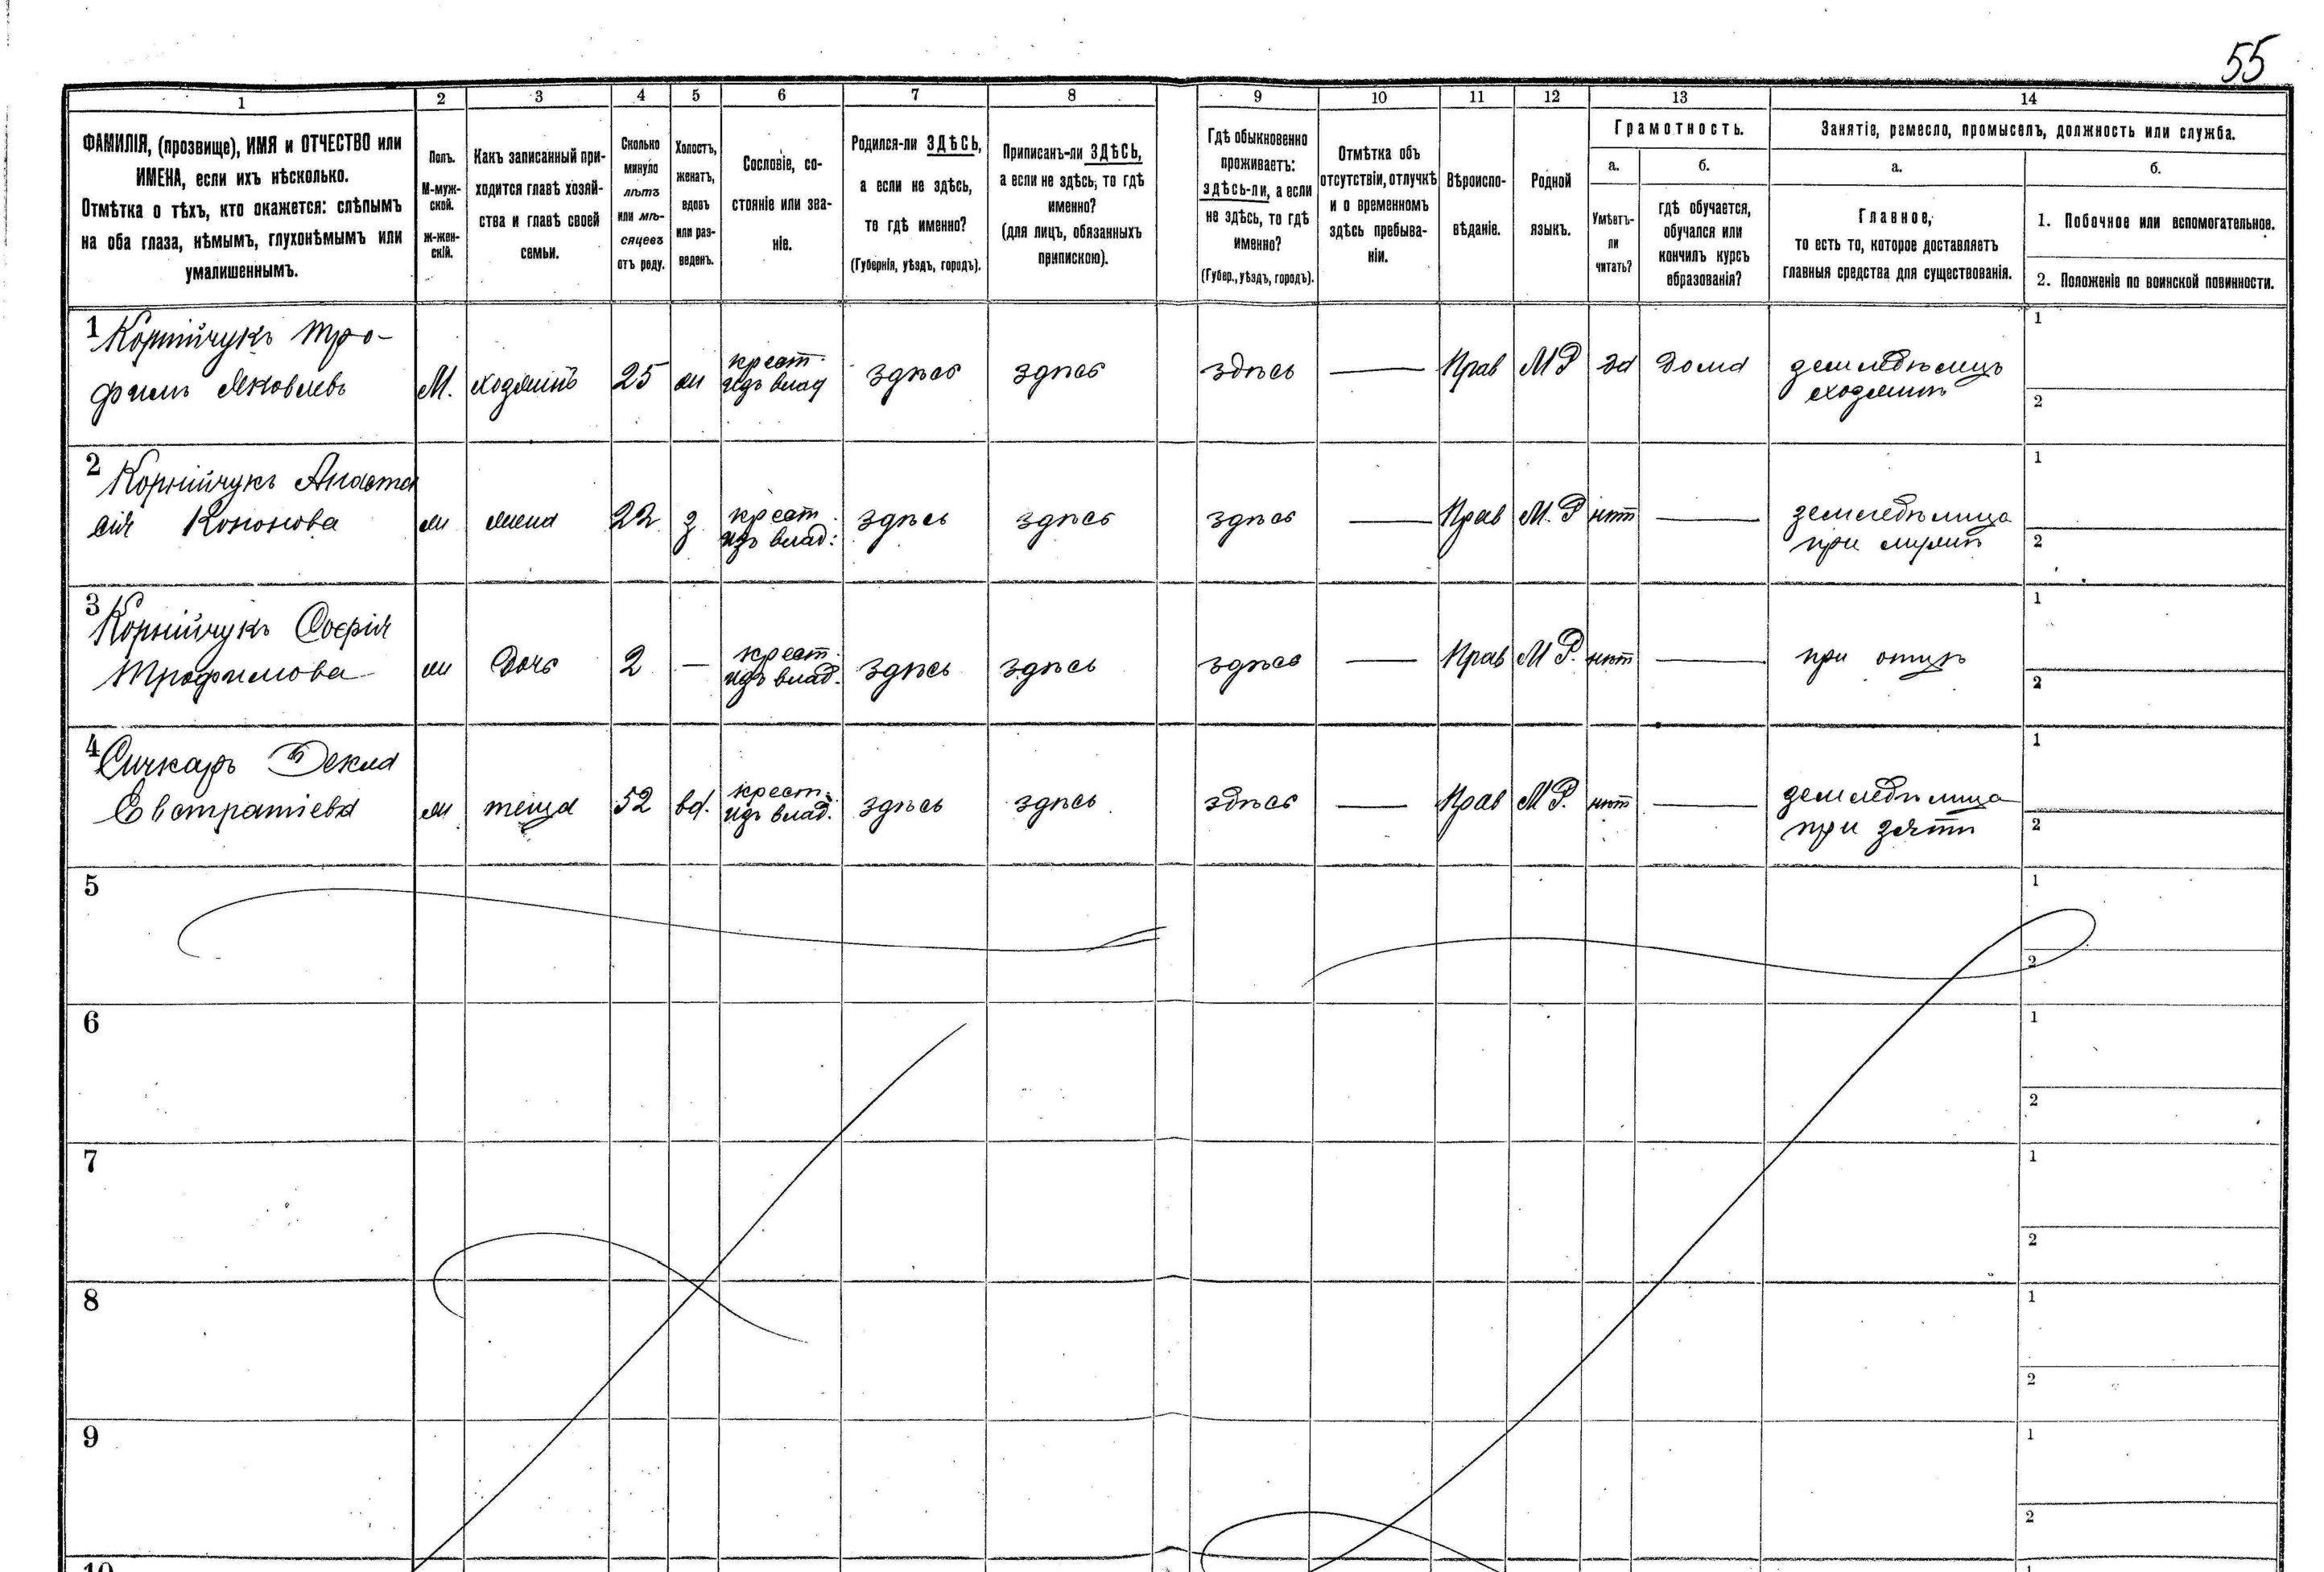 55
1 2 3 4 5 6 7 8 9 10 11 12 13 14
ФАМИЛІЯ, (прозвище), ИМЯ и ОТЧЕСТВО или
ИМЕНА, если ихъ нѣсколько.
Отмѣтка о тѣхъ, кто окажется: слѣпымъ
на оба глаза, нѣмымъ, глухонѣмымъ или
умалишеннымъ.
Полъ.
М-муж-
ской.
ж-жен-
скій.
Какъ записанный при-
ходится главѣ хозяй-
ства и главѣ своей
семьи.
Сколько
минуло
лѣтъ
или мѣ-
сяцевъ
отъ роду.
Холостъ,
женатъ,
вдовъ
или раз-
веденъ.
Сословіе, со-
стояніе или зва-
ніе.
Родился-ли ЗДѢСЬ,
а если не здѣсь,
то гдѣ именно?
(Губернія, уѣздъ, городъ).
Приписанъ-ли ЗДѢСЬ,
а если не здѣсь, то гдѣ
именно?
(для лицъ, обязанныхъ
припискою).
Гдѣ обыкновенно
проживаетъ:
здѣсь-ли, а если
не здѣсь, то гдѣ
именно?
(Губер., уѣздъ, городъ).
Отмѣтка объ
отсутствіи, отлучкѣ
и о временномъ
здѣсь пребыва-
ніи.
Вѣроиспо-
вѣданіе.
Родной
языкъ.
Грамотность.
а.
Умѣетъ-
ли
читать?
б.
гдѣ обучается,
обучался или
кончилъ курсъ
образованія?
Занятіе, ремесло, промыселъ, должность или служба.
а.
Главное,
то есть то, которое доставляетъ
главныя средства для существованія.
б.
1. Побочное или вспомогательное.
2. Положеніе по воинской повинности.
1 Корнійчукъ Тро-
фимъ Яковлевъ
М. хозяинъ 25 ж крест.
изъ влад здѣсь здѣсь здѣсь — Прав М Р да дома земледѣлецъ
хозяинъ
1
2
2 Корнійчукъ Анаста
сія Кононова
ж жена 22 з крест.
изъ влад: здѣсь здѣсь здѣсь — Прав М. Р нѣт — земледѣлица
при мужѣ
1
2
3 Корнійчукъ Софія
Трофимова
ж дочь 2 — крест.
изъ влад. здѣсь здѣсь здѣсь — Прав М Р. нѣт — при отцѣ
1
2
4 Сичкарь Текла
Евстратіева
ж теща 52 вд. крест.
изъ влад. здѣсь здѣсь здѣсь — Прав М Р. нѣт — земледѣлица
при зятѣ
1
2
5
1
2
6
1
2
7
1
2
8
1
2
9
1
2
10
1